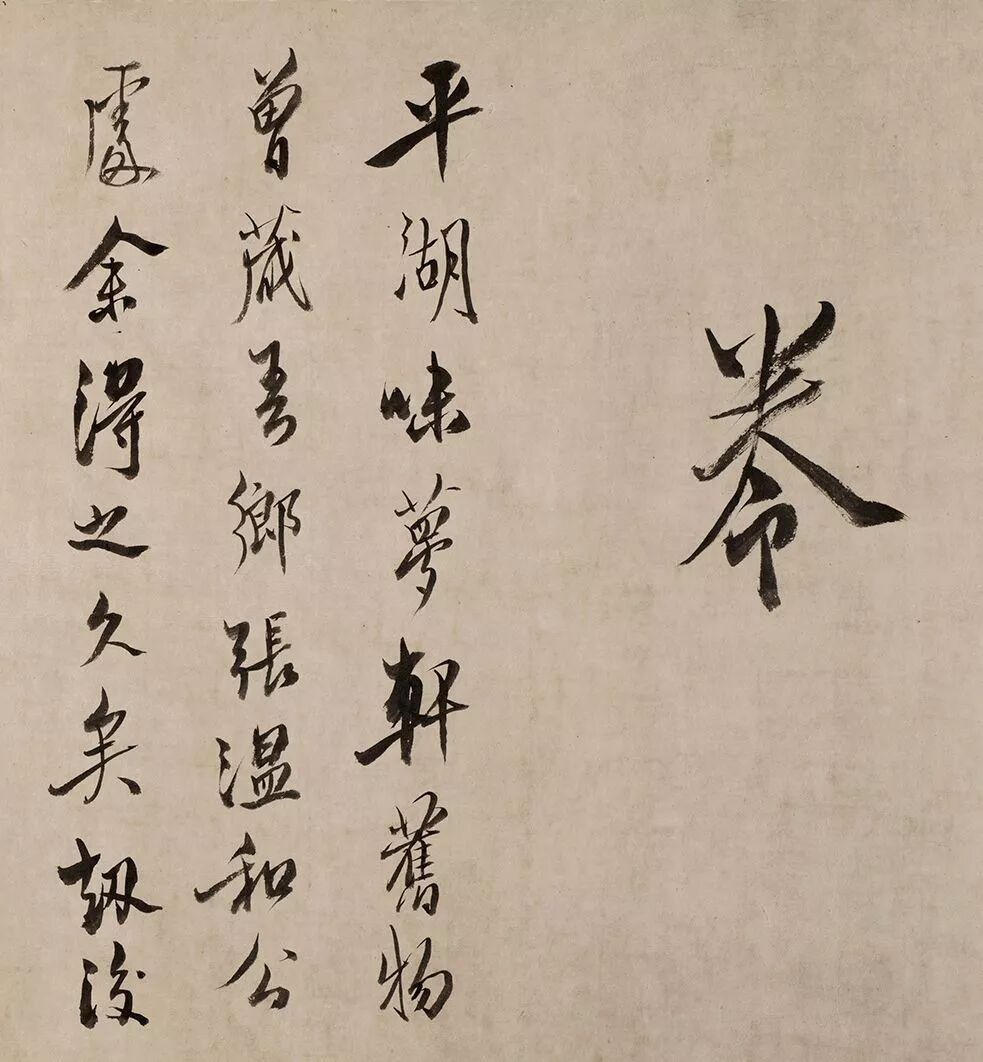 卷
平湖味夢軒舊物
曾藏吾鄉張温和公
處余得之久矣刼後